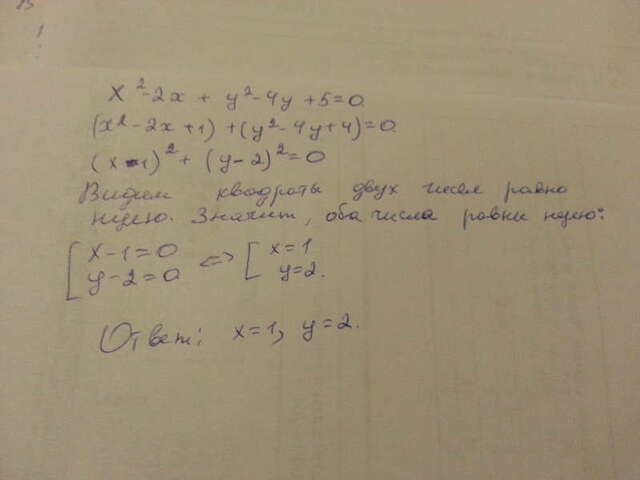 x²-2x + y²-4y +5=0
(x²-2x+1)+(y²-4y+4)=0
(x-1)²+(y-2)²=0
Видим квадраты двух чисел равно
нулю. Значит, оба числа равны нулю:
[ x-1=0 <=> [ x=1
y-2=0 y=2.
Ответ: x=1, y=2.